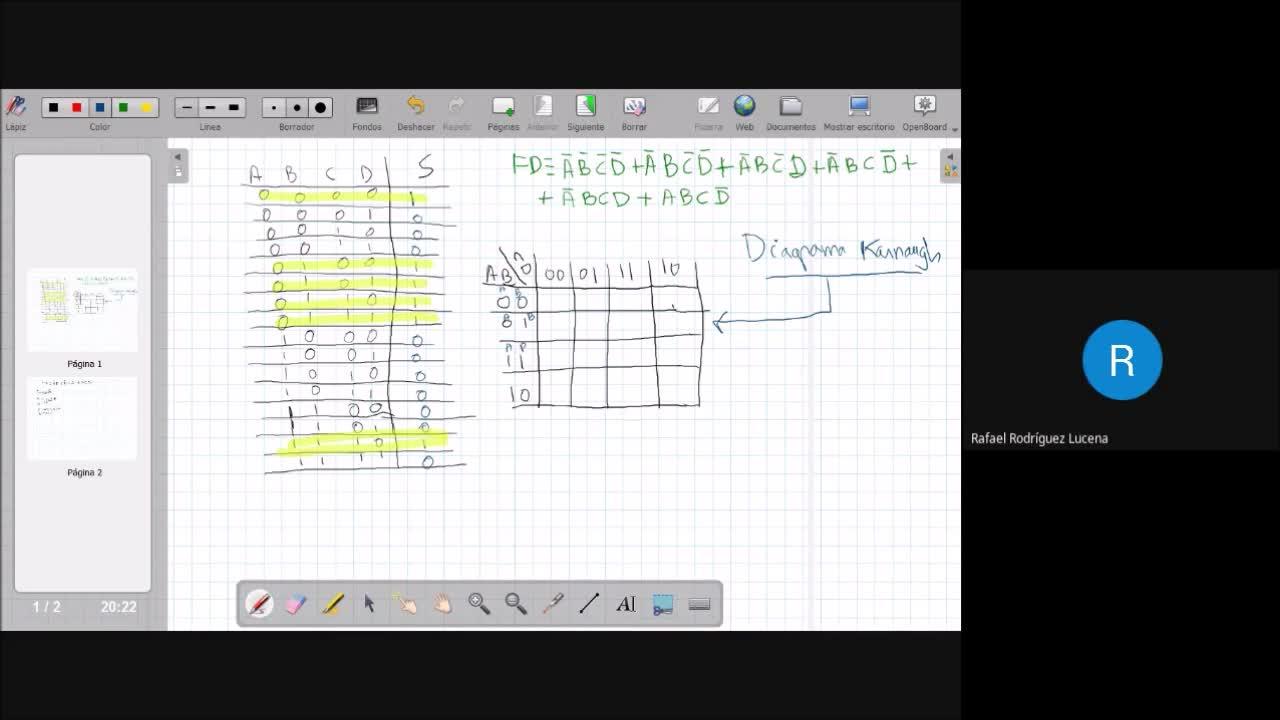 Lápiz Color Línea Borrador Fondos Deshacer Repetir Páginas Anterior Siguiente Borrar Pizarra Web Documentos Mostrar escritorio OpenBoard
Página 1
Página 2
1 / 2 20:22
A B C D S
0 0 0 0 1
0 0 0 1 0
0 0 1 0 0
0 0 1 1 0
0 1 0 0 1
0 1 0 1 1
0 1 1 0 1
0 1 1 1 1
1 0 0 0 0
1 0 0 1 0
1 0 1 0 0
1 0 1 1 0
1 1 0 0 0
1 1 0 1 0
1 1 1 0 1
1 1 1 1 0
FD= A̅ B̅ C̅ D̅ + A̅ B C̅ D̅ + A̅ B C̅ D + A̅ B C D̅ +
+ A̅ B C D + A B C D̅
Diagrama Karnaugh
AB 00 01 11 10
00
11
10
AI
R
Rafael Rodríguez Lucena